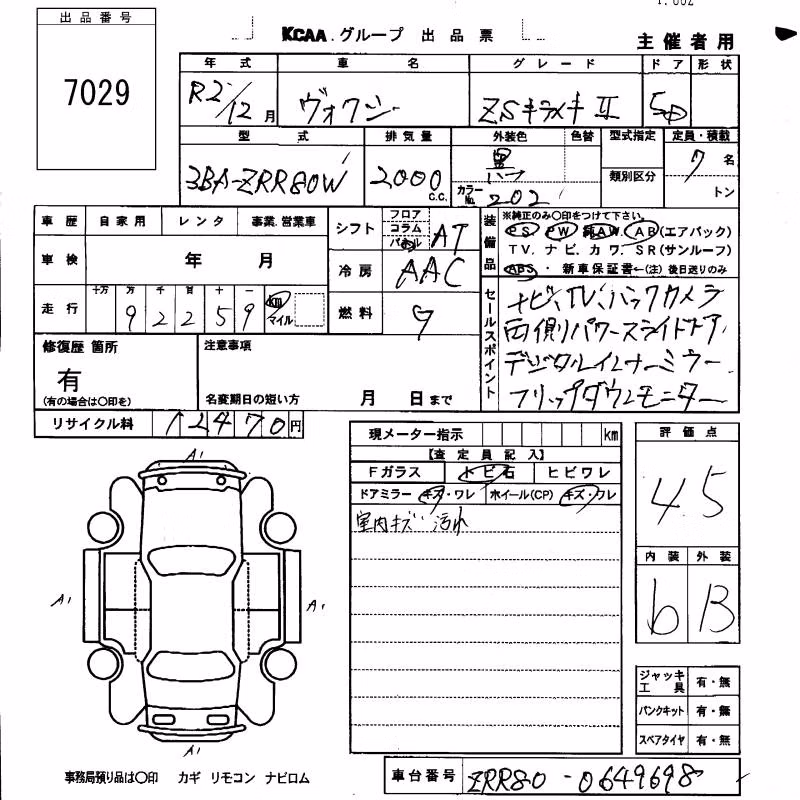 出品番号
7029
KCAA.グループ 出品票
主催者用
年式 車名 グレード ドア 形状
R2/12月 ヴォクシー ZSキラメキⅡ 5D
型式 排気量 外装色 色替 型式指定 定員・積載
3BA-ZRR80W 2000 C.C. 黒 類別区分 7名
カラーNo. 202 トン
車歴 自家用 レンタ 事業.営業車
シフト フロア コラム パネル AT
装備品 ※純正のみ〇印をつけて下さい。
PS PW 純AW. AB(エアバック)
TV. ナビ. カワ. SR(サンルーフ)
ABS・ 新車保証書←(注)後日送りのみ
車検 年 月
冷房 AAC
走行 十万 万 千 百 十 一 km マイル
92259
燃料 G
セールスポイント
ナビ、TV、バックカメラ
両側パワースライドドア、
デジタルインナーミラー
フリップダウンモニター
修復歴箇所
有
(有の場合は〇印を)
注意事項
名変期日の短い方 月 日まで
リサイクル料 12470円
現メーター指示 km
【査定員記入】
Fガラス トビ石 ヒビワレ
ドアミラー キズ・ワレ ホイール(CP) キズ・ワレ
室内キズ 汚れ
評価点
4.5
内装 外装
b B
A1
A1
A1
A1
ジャッキ工具 有・無
パンクキット 有・無
スペアタイヤ 有・無
事務局預り品は〇印 カギ リモコン ナビロム
車台番号 ZRR80-0649698